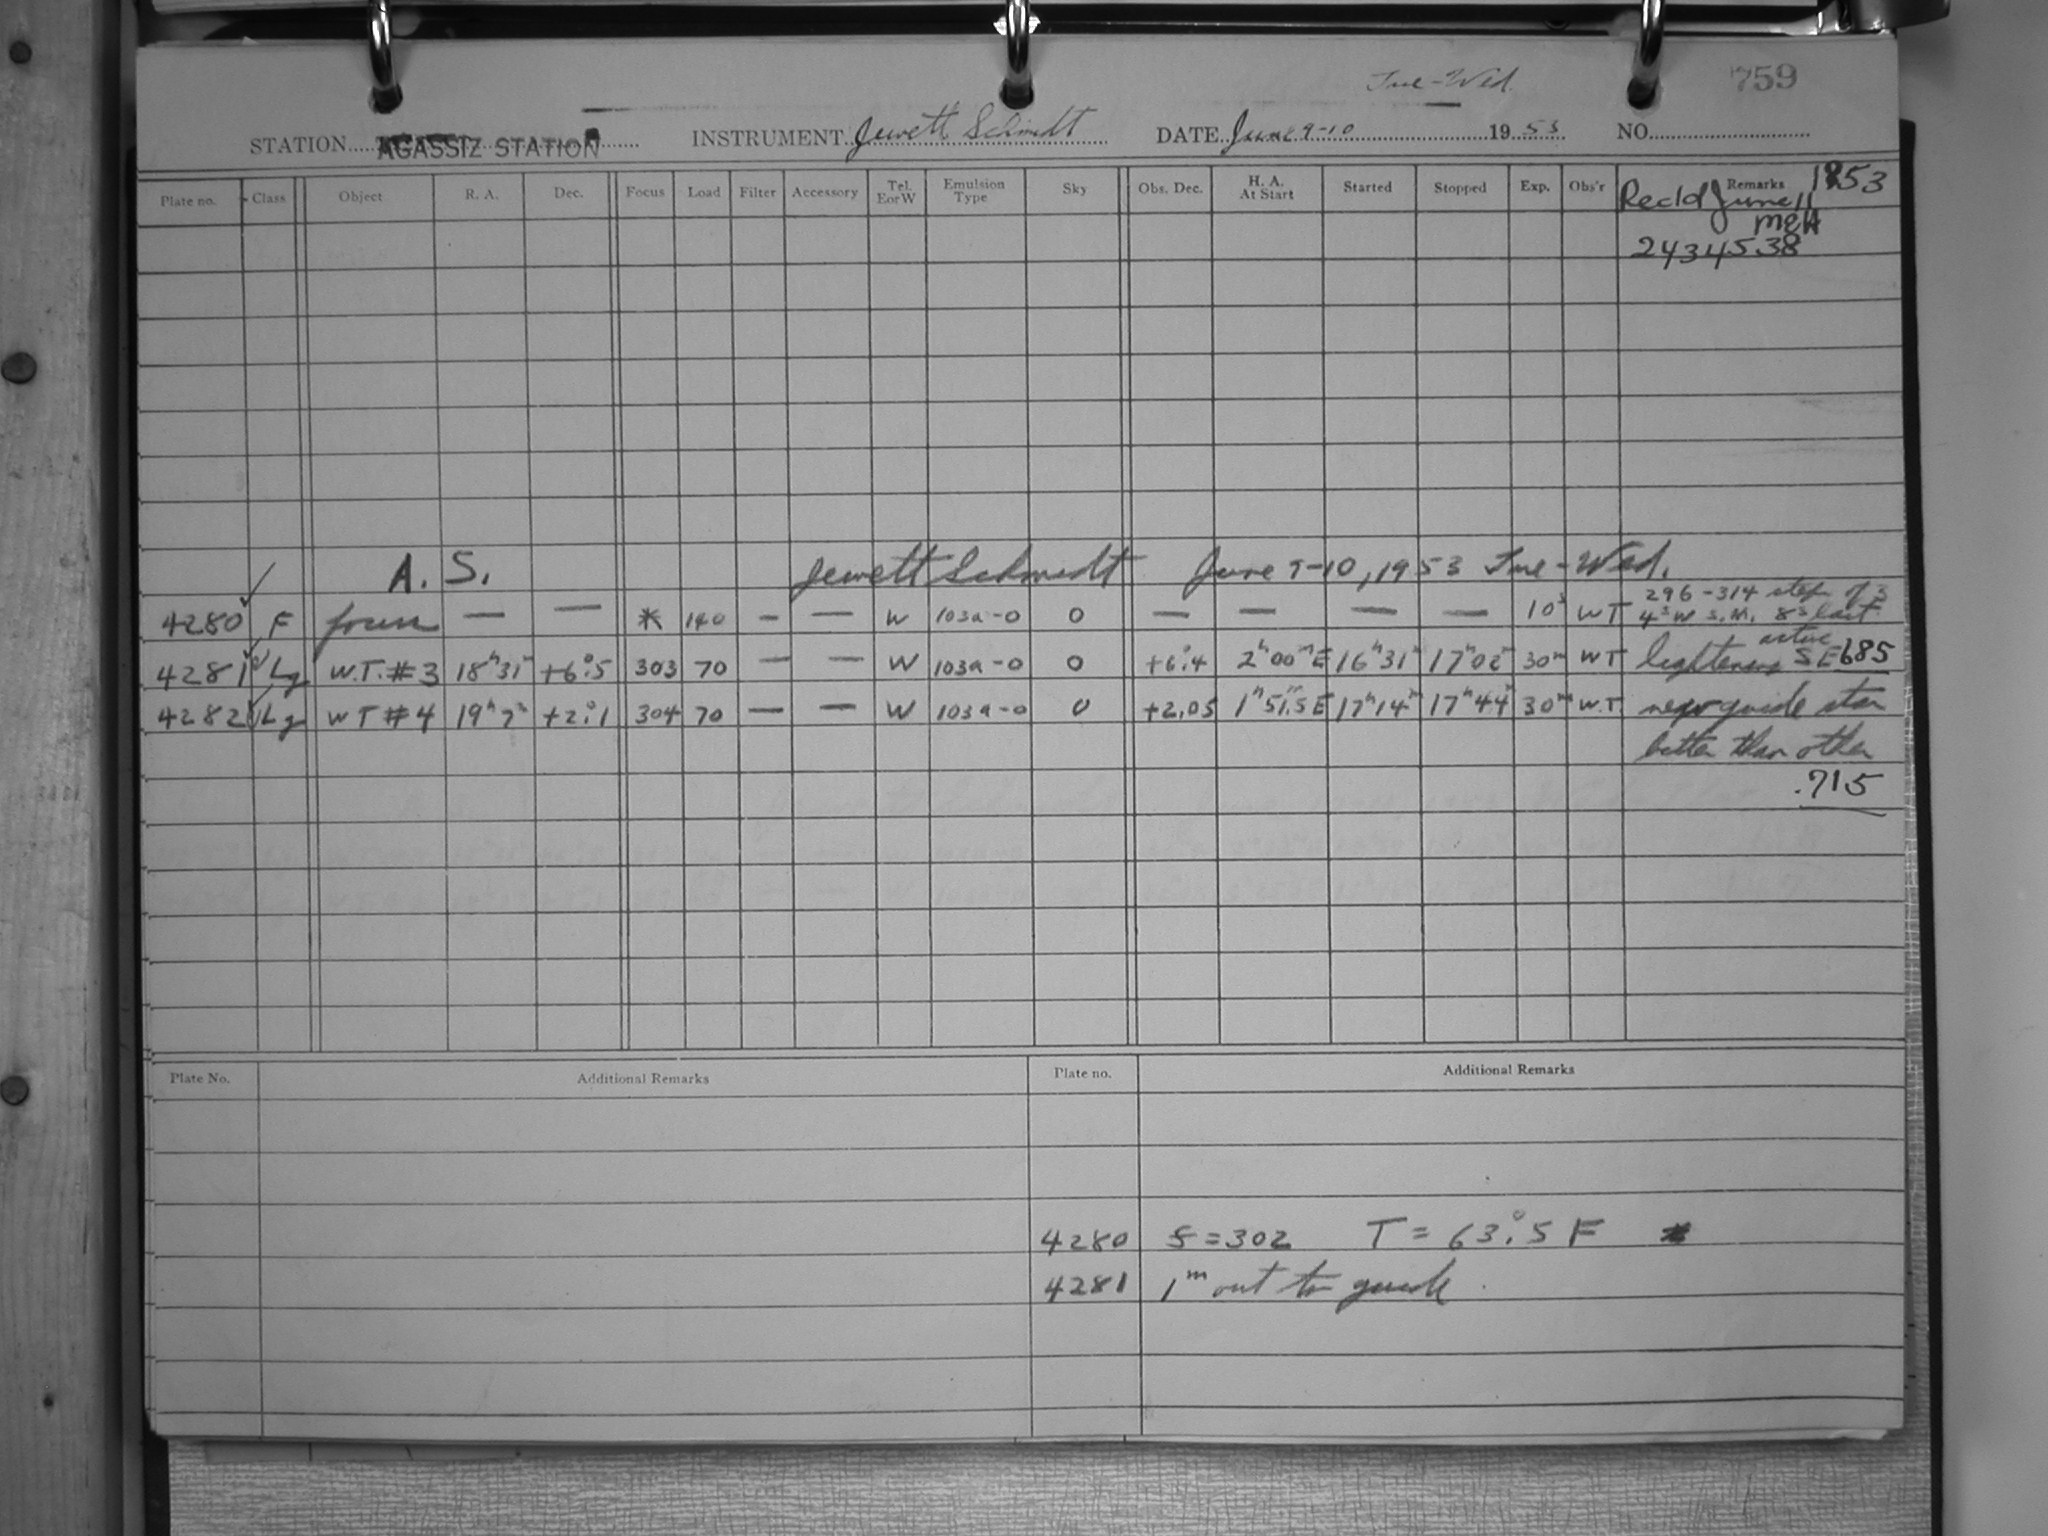 Tue-Wed. 759
STATION AGASSIZ STATION INSTRUMENT Jewett Schmidt DATE June 9-10 1953 NO.
Plate no. Class Object R. A. Dec. Focus Load Filter Accessory Tel. E or W Emulsion Type Sky Obs. Dec. H. A. At Start Started Stopped Exp. Obs'r Remarks 1953
Rec'd June 11
MEH
2434538
A. S. Jewett Schmidt June 9-10, 1953 Tue-Wed.
296-314 step of 3
4280 F focus — — * 140 — — W 103a-O 0 — — — — 10s WT 4s W s.m. 8s last
active
4281 Lg W.T. #3 18h31m +6°.5 303 70 — — W 103a-O 0 +6°.4 2h00mE 16h31m 17h02m 30m WT lightening SE 685
4282 Lg WT #4 19h7m +2°.1 304 70 — — W 103a-O 0 +2.05 1h51m.5E 17h14m 17h44m 30m W.T. new guide star
better than other
.715
Plate No. Additional Remarks Plate no. Additional Remarks
4280 F=302 T = 63°.5 F *
4281 1m out to guide.